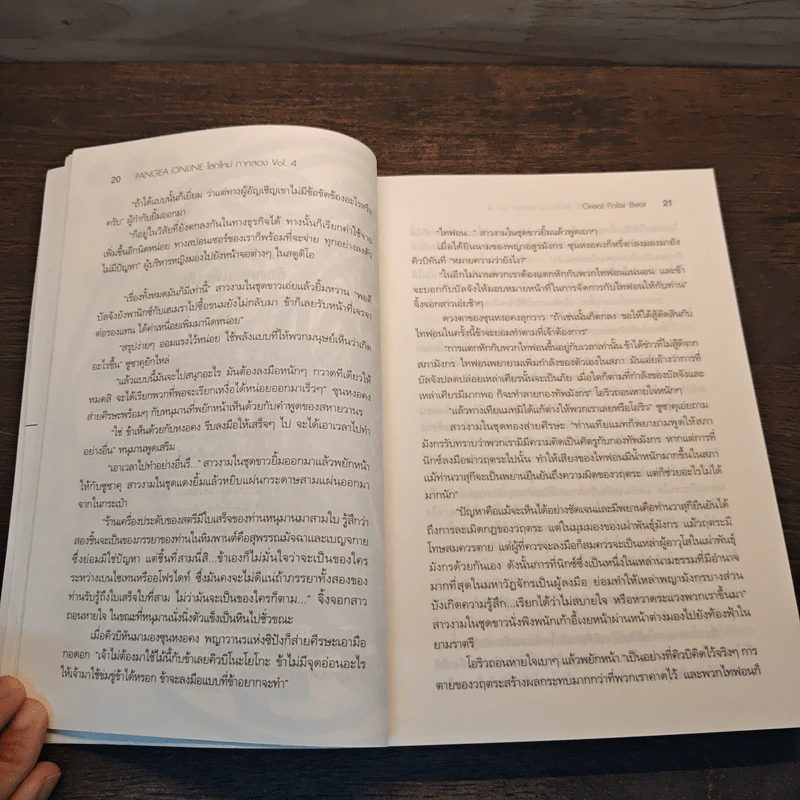 20 PANGEA ONLINE โลกใหม่ ภาคสอง Vol. 4
"ถ้าได้แบบนั้นก็เยี่ยม ว่าแต่ทางผู้อัญเชิญเขาไม่มีข้อขัดข้องอะไรหรือ
ครับ" ผู้กำกับยิ้มออกมา
"ก็อยู่ในวิสัยที่ยังตกลงกันในทางธุรกิจได้ ทางนั้นก็เรียกค่าใช้จ่าย
เพิ่มขึ้นอีกนิดหน่อย ทางสปอนเซอร์ของเราก็พร้อมที่จะจ่าย ทุกอย่างลงตัว
ไม่มีปัญหา" ผู้บริหารหญิงมองไปยังหน้าจอต่างๆ ในสตูดิโอ
"เรื่องทั้งหมดมันก็มีเท่านี้" สาวงามในชุดขาวเอ่ยแล้วยิ้มหวาน "พอดี
บัลจังยังพานิกซ์กับเฮเมราไปซื้อขนมยังไม่กลับมา ข้าก็เลยรับหน้าที่เจรจา
ต่อรองแทน ได้ค่าเหนื่อยเพิ่มมานิดหน่อย"
"สรุปง่ายๆ ออมแรงไว้หน่อย ใช้พลังแบบที่ให้พวกมนุษย์เห็นว่าเกิด
อะไรขึ้น" ซูซาคุยักไหล่
"แล้วแบบนี้มันจะไปสนุกอะไร มันต้องลงมือหนักๆ กวาดทีเดียวให้
หมดสิ จะได้ไม่เสียเวลา พวกที่พอจะเรียกเหงื่อได้หน่อยออกมาเร็วๆ" ซุนหงอคง
ส่ายศีรษะพร้อมๆ กับหนุมานที่พยักหน้าเห็นด้วยกับคำพูดของสหายวานร
"ใช่ ข้าเห็นด้วยกับหงอคง รีบลงมือให้เสร็จๆ ไป จะได้เอาเวลาไปทำ
อย่างอื่น" หนุมานพูดเสริม
"เอาเวลาไปทำอย่างอื่นรึ..." สาวงามในชุดขาวยิ้มออกมาแล้วพยักหน้า
ให้กับซูซาคุ สาวงามในชุดแดงยิ้มแล้วหยิบแผ่นกระดาษสามแผ่นออกมา
จากในกระเป๋า
"ร้านเครื่องประดับของสตรีมีใบเสร็จของท่านหนุมานมาสามใบ รู้สึกว่า
สองชิ้นจะเป็นของภรรยาของท่านในหิมพานต์คือสุพรรณมัจฉาและเบญกาย
ซึ่งย่อมมิใช่ปัญหา แต่ชิ้นที่สามนี่สิ...ข้าเองก็ไม่มั่นใจว่าจะเป็นของใคร
ระหว่างเบนไซเทนหรืออโฟรไดท์ ซึ่งมันคงจะไม่ดีแน่ถ้าภรรยาทั้งสองของ
ท่านรับรู้ถึงใบเสร็จใบที่สาม ไม่ว่ามันจะเป็นของใครก็ตาม..." จิ้งจอกสาว
ถอนหายใจ ในขณะที่หนุมานนั่งนิ่งตัวแข็งเป็นหินไปชั่วขณะ
เมื่อคิวบิหันมามองซุนหงอคง พญาวานรแห่งซีปังก็ส่ายศีรษะเอามือ
กอดอก "เจ้าไม่ต้องมาใช้ไม้นี้กับข้าเลยคิวบิโนะโยโกะ ข้าไม่มีจุดอ่อนอะไร
ให้เจ้ามาใช้ข่มขู่ข้าได้หรอก ข้าจะลงมือแบบที่ข้าอยากจะทำ"
Great Polar Bear 21
"ไทฟอน..." สาวงามในชุดขาวยิ้มแล้วพูดเบาๆ
เมื่อได้ยินนามของพญาอสูรมังกร ซุนหงอคงก็หรี่ตาลงมองมายัง
คิวบิทันที "หมายความว่ายังไง?"
"ในอีกไม่นานพวกเราต้องแตกหักกับพวกไทฟอนแน่นอน และข้า
จะบอกกับบัลจังให้มอบหมายหน้าที่ในการจัดการกับไทฟอนให้กับท่าน"
จิ้งจอกสาวเอ่ยช้าๆ
ดวงตาของซุนหงอคงลุกวาว "ถ้าเช่นนั้นก็ตกลง ขอให้ได้สู้ตัดสินกับ
ไทฟอนในครั้งนี้ข้าจะยอมทำตามที่เจ้าต้องการ"
"การแตกหักกับพวกไทฟอนขึ้นอยู่กับเวลาเท่านั้น ข้าได้ข่าวที่ไม่สู้ดีจาก
สภามังกร ไทฟอนพยายามเพิ่มกำลังของตัวเองในสภา มันเอ่ยอ้างว่าการที่
บัลจังปลดปล่อยเหล่าเศียรนั้นจะเป็นภัย เมื่อใดก็ตามที่กำลังของบัลจังและ
เหล่าเศียรมีมากพอ ก็จะทำลายกองทัพมังกร" โอริวถอนหายใจหนักๆ
"แล้วทางเทียแมทมิได้แก้ต่างให้พวกเราเลยหรือโอริว" ซูซาคุเอ่ยถาม
สาวงามในชุดทองส่ายศีรษะ "ท่านเทียแมทก็พยายามพูดให้สภา
มังกรรับทราบว่าพวกเรามิมีความคิดเป็นศัตรูกับกองทัพมังกร หากแต่การที่
นิกซ์ลงมือฆ่าวฤตระไปนั้น ทำให้เสียงของไทฟอนมีน้ำหนักมากขึ้นในสภา
แม้ท่านวาสุกีจะเป็นพยานยืนยันถึงความผิดของวฤตระ แต่ก็ช่วยอะไรไม่ได้
มากนัก"
"ปัญหาคือแม้จะเห็นได้อย่างชัดเจนและมีพยานคือท่านวาสุกียืนยันได้
ถึงการละเมิดกฎของวฤตระ แต่ในมุมมองของเผ่าพันธุ์มังกร แม้วฤตระมี
โทษสมควรตาย แต่ผู้ที่ควรจะลงมือก็สมควรจะเป็นเหล่าผู้อาวุโสในเผ่าพันธุ์
มังกรด้วยกันเอง ดังนั้นการที่นิกซ์ซึ่งเป็นหนึ่งในเหล่านามธรรมที่มีอำนาจ
มากที่สุดในมหาวัฏจักรเป็นผู้ลงมือ ย่อมทำให้เหล่าพญามังกรบางส่วน
บังเกิดความรู้สึก...เรียกได้ว่าไม่สบายใจ หรือหวาดระแวงพวกเราขึ้นมา"
สาวงามในชุดขาวนั่งพิงพนักเก้าอี้เงยหน้าผ่านหน้าต่างมองไปยังท้องฟ้าใน
ยามราตรี
โอริวถอนหายใจเบาๆ แล้วพยักหน้า "เป็นอย่างที่คิวบิคิดไว้จริงๆ การ
ตายของวฤตระสร้างผลกระทบมากกว่าที่พวกเราคาดไว้ และพวกไทฟอนก็